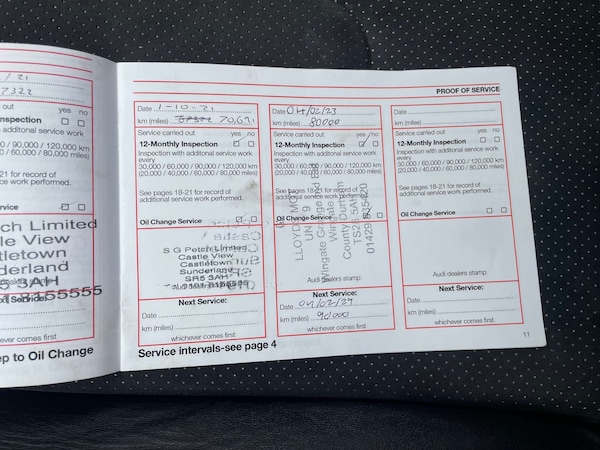 / 21
7322
out yes no
nspection
additonal service work
0 / 90,000 / 120,000 km
0 / 60,000 / 80,000 miles)
-21 for record of
work performed.
vice
tch Limited
le View
tletown
derland
3AH
8155555
t Service:
omes first
ep to Oil Change
PROOF OF SERVICE
Date 1-10-21
km (miles) 70,691
Service carried out yes no
12-Monthly Inspection
Inspection with additional service work
every
30,000 / 60,000 / 90,000 / 120,000 km
(20,000 / 40,000 / 60,000 / 80,000 miles)
See pages 18-21 for record of
additional service work performed.
Oil Change Service
S G Petch Limited
Castle View
Castletown
Sunderland
SR5 3AH
Next Service:
Date
km (miles)
whichever comes first
Date 04/02/23
km (miles) 80000
Service carried out yes no
12-Monthly Inspection
Inspection with additional service work
every
30,000 / 60,000 / 90,000 / 120,000 km
(20,000 / 40,000 / 60,000 / 80,000 miles)
See pages 18-21 for record of
additional service work performed.
Oil Change Service
LLOYDS
Wingate Grange
Wingate
County Durham
01429
Audi dealers stamp
Next Service:
Date 04/02/24
km (miles) 90000
whichever comes first
Date
km (miles)
Service carried out yes no
12-Monthly Inspection
Inspection with additional service work
every
30,000 / 60,000 / 90,000 / 120,000 km
(20,000 / 40,000 / 60,000 / 80,000 miles)
See pages 18-21 for record of
additional service work performed.
Oil Change Service
Audi dealers stamp
Next Service:
Date
km (miles)
whichever comes first
Service intervals-see page 4
11